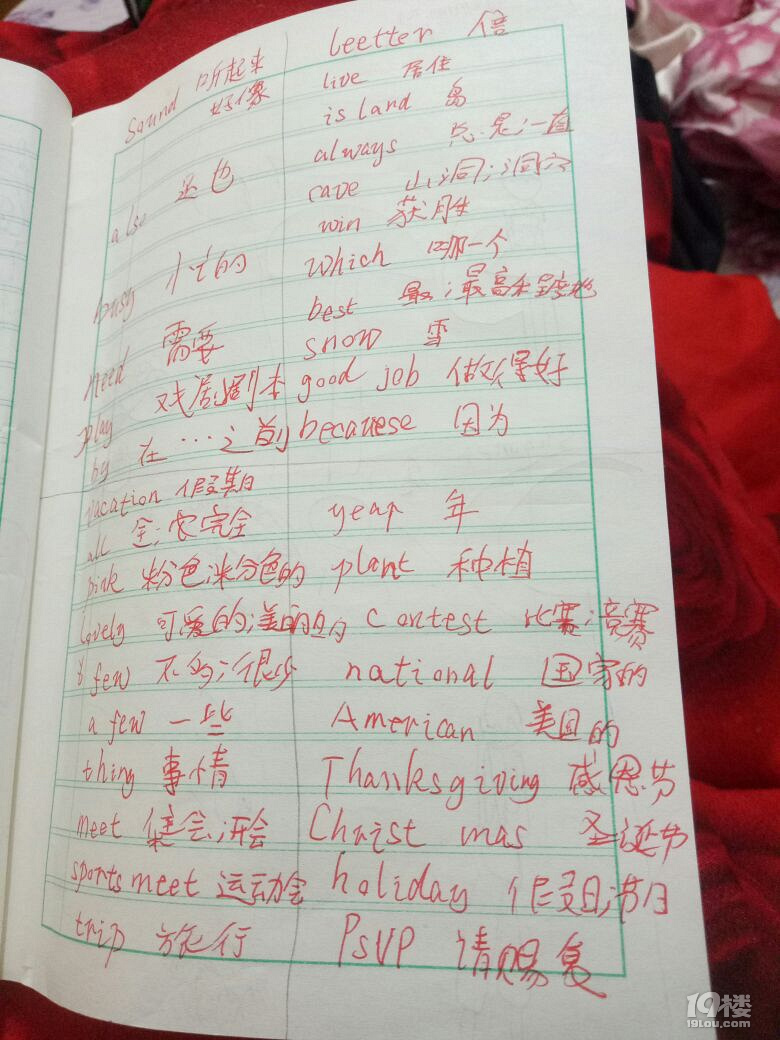 sound 听起来
好像
also 还也
busy 忙的
need 需要
play 戏剧剧本
by 在…之前
vacation 假期
all 全;完全
pink 粉色;粉色的
lovely 可爱的;美丽的
few 不多;很少
a few 一些
thing 事情
meet 集会;开会
sports meet 运动会
trip 旅行
leetter 信
live 居住
island 岛
always 总是;一直
cave 山洞;洞穴
win 获胜
which 哪一个
best 最;最高程度地
snow 雪
good job 做得好
becauese 因为
year 年
plant 种植
contest 比赛;竞赛
national 国家的
American 美国的
Thanksgiving 感恩节
Christ mas 圣诞节
holiday 假日;节日
PSVP 请赐复
19楼
19lou.com